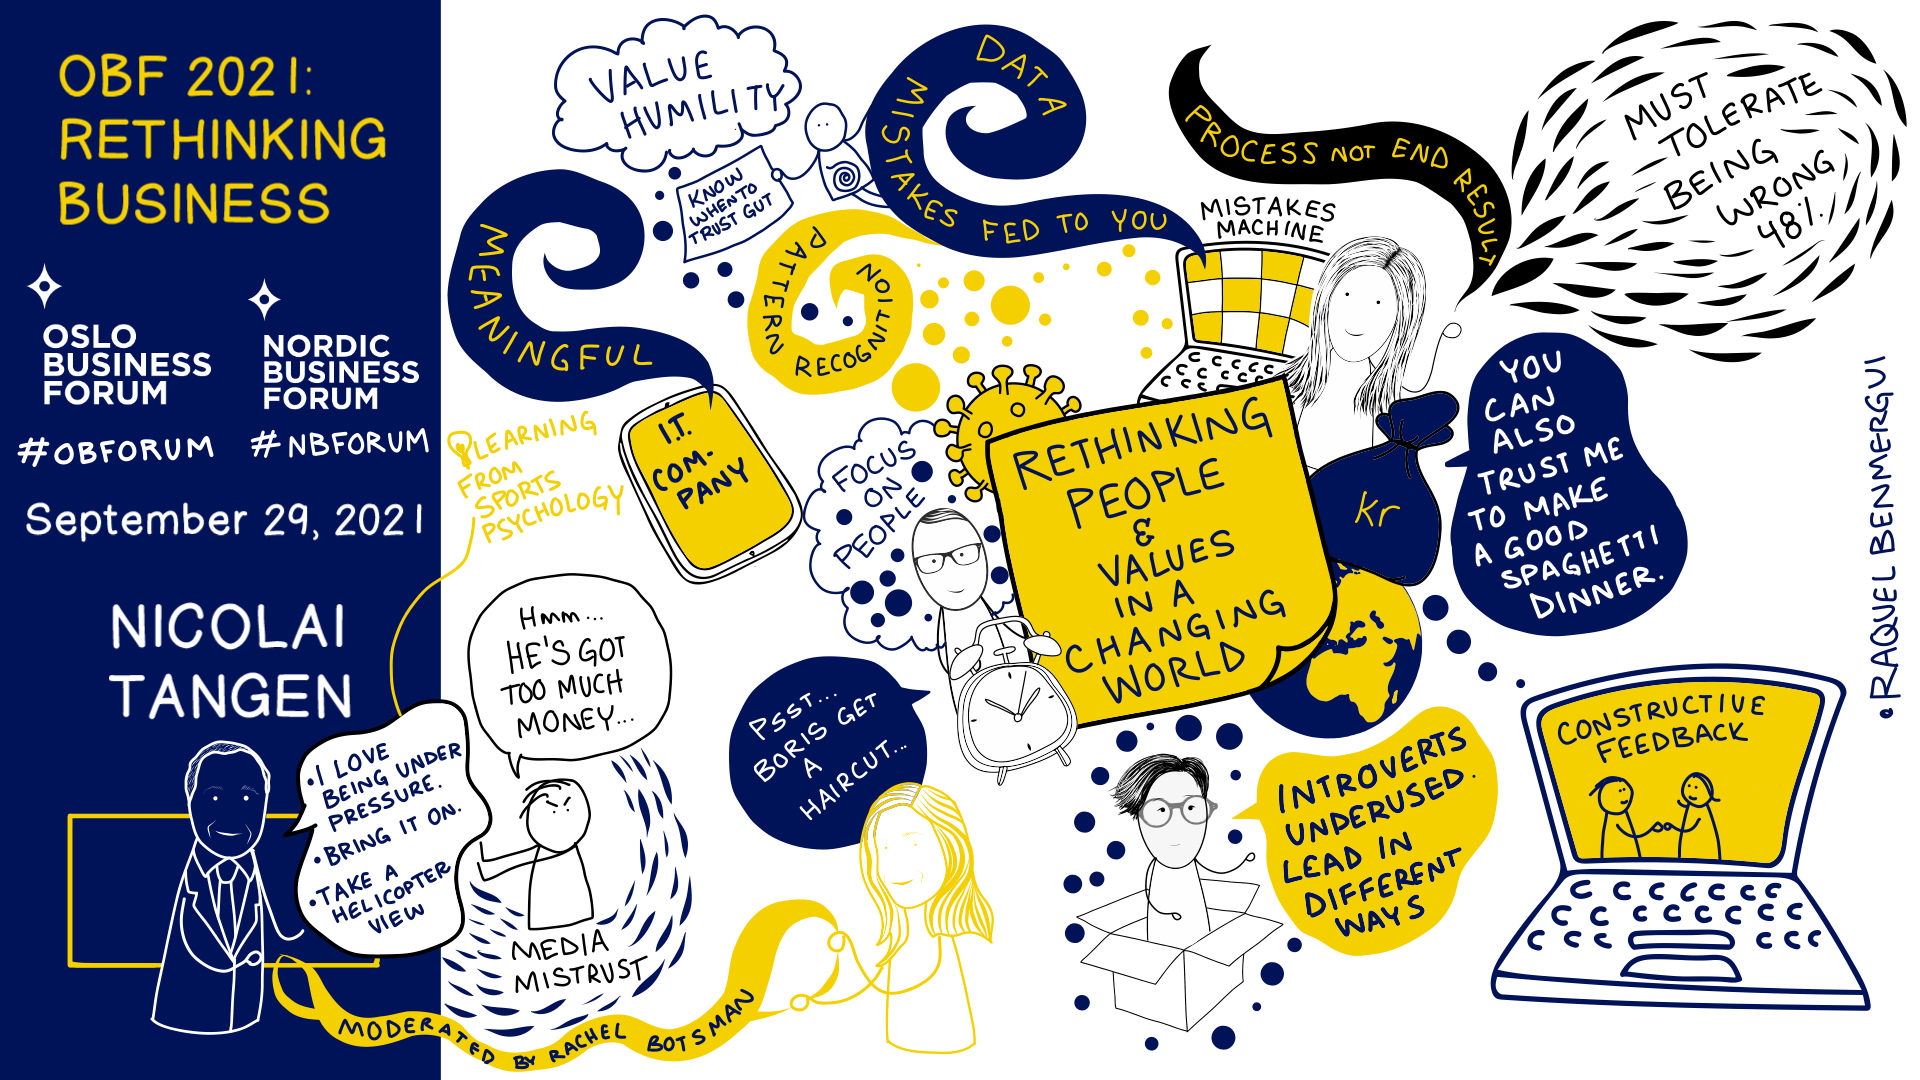 OBF 2021:
RETHINKING
BUSINESS
OSLO
BUSINESS
FORUM
#OBFORUM
NORDIC
BUSINESS
FORUM
#NBFORUM
September 29, 2021
NICOLAI
TANGEN
•I LOVE
BEING UNDER
PRESSURE.
•BRING IT ON.
•TAKE A
HELICOPTER
VIEW
MODERATED BY RACHEL BOTSMAN
LEARNING
FROM
SPORTS
PSYCHOLOGY
Hmm...
HE'S GOT
TOO MUCH
MONEY...
MEDIA
MISTRUST
VALUE
HUMILITY
KNOW
WHEN TO
TRUST GUT
MEANINGFUL
I.T.
COM-
PANY
PATTERN RECOGNITION
DATA
MISTAKES FED TO YOU
MISTAKES
MACHINE
PROCESS NOT END RESULT
MUST
TOLERATE
BEING
WRONG
48%
FOCUS
ON
PEOPLE
RETHINKING
PEOPLE
&
VALUES
IN A
CHANGING
WORLD
Kr
YOU
CAN
ALSO
TRUST ME
TO MAKE
A GOOD
SPAGHETTI
DINNER.
PSST...
BORIS GET
A
HAIRCUT...
INTROVERTS
UNDERUSED.
LEAD IN
DIFFERENT
WAYS
CONSTRUCTIVE
FEEDBACK
•RAQUEL BENMERGUI